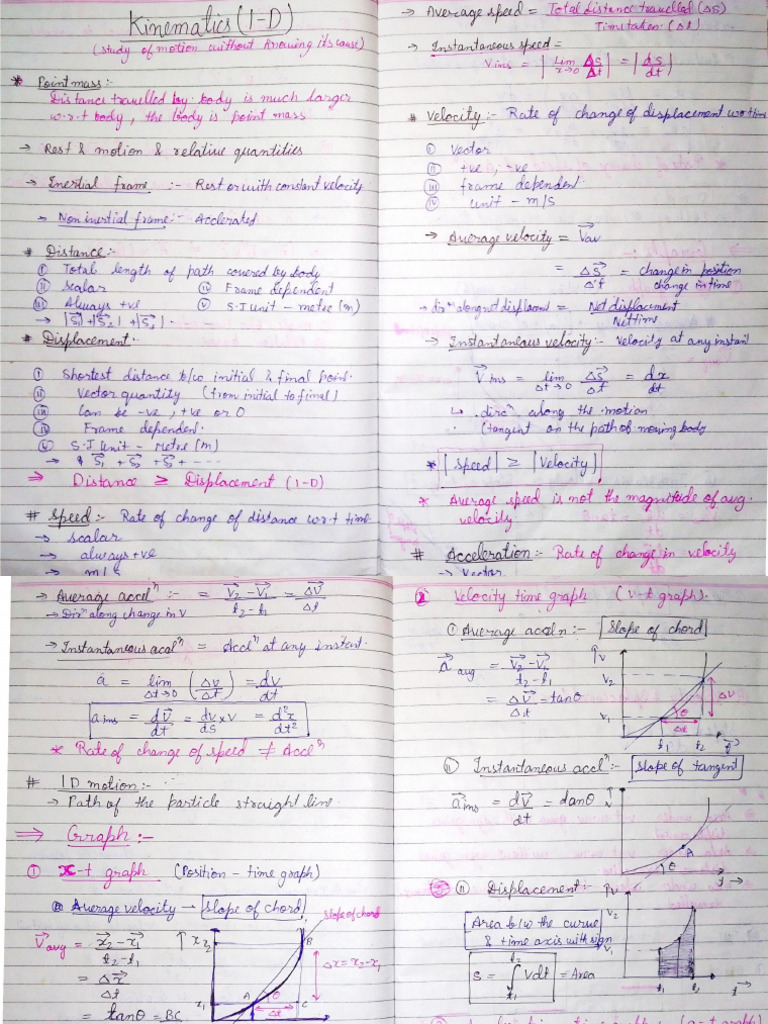 Kinematics (1-D)
(study of motion without knowing its cause)
* Point mass :-
Distance travelled by body is much larger
w.r.t body, the body is point mass
→ Rest & motion & relative quantities
→ Inertial frame :- Rest or with constant velocity
→ Non inertial frame :- Acclerated
* Distance :-
(i) Total length of path covered by body
(ii) Scalar (iv) Frame dependent
(iii) Always +ve (v) S.I unit - metre (m)
→ |S₁| + |S₂| + |S₃| . . . .
* Displacement :-
(i) Shortest distance b/w initial & final point.
(ii) Vector quantity (from initial to final)
(iii) Can be -ve, +ve or 0
(iv) Frame dependent.
(v) S.I unit - metre (m)
→ S₁ + S₂ + S₃ + - - - .
⇒ Distance ≥ Displacement (1-D)
# Speed :- Rate of change of distance w.r.t time
→ scalar
→ always +ve
→ m/s
→ Average speed = Total distance travelled (ΔS)
Time taken (Δt)
→ Instantaneous speed =
V ins = | Lim x→0 ΔS/Δt | = | ds/dt |
# Velocity :- Rate of change of displacement w.r.t time
(i) Vector
(ii) +ve, -ve
(iii) frame dependent
(iv) unit - m/s
→ Average velocity = V⃗av
= ΔS⃗/Δt = change in position / change in time
→ dirⁿ along net displacment = Net displacement / Net time
→ Instantaneous velocity :- Velocity at any instant
V⃗ins = lim Δt→0 ΔS⃗/Δt = dx/dt
↳ dirⁿ along the motion
(tangent on the path of moving body
* |Speed| ≥ |Velocity|
* Average speed is not the magnitude of avg.
velocity
# Acceleration :- Rate of change in velocity
→ Vector
→ Average accelⁿ :- = V⃗₂-V⃗₁ / t₂-t₁ = ΔV⃗/Δt
→ Dirⁿ along change in V
→ Instantaneous acclⁿ = Acclⁿ at any instant.
a = lim Δt→0 (Δv/Δt) = dv/dt
a ins = dV⃗/dt = dv/ds x v = d²x/dt²
* Rate of change of speed ≠ Acclⁿ
# 1D motion :-
→ Path of the particle straight line.
⇒ Graph :-
(1) x-t graph (Position - time graph)
Average velocity → Slope of chord
slope of chord
V⃗avg = x⃗₂-x⃗₁ / t₂-t₁
= Δx⃗/Δt
= tanθ = BC
x₂
x₁
A
B
C
θ
Δt
Δx = x₂-x₁
(2) Velocity time graph (v-t graph).
(i) Average accln :- Slope of chord
a⃗avg = V⃗₂-V⃗₁ / t₂-t₁
= ΔV⃗/Δt = tanθ
V
V₂
V₁
θ
Δt
ΔV
t₁ t₂ t
(ii) Instantaneous acclⁿ :- Slope of tangent
a⃗ins = dV⃗/dt = danθ
A
θ
t →
(iii) Displacement :-
Area b/w the curve
& time axis with sign
S = ∫ Vdt = Area
t₂
t₁
V
V₂
V₁
t₁ t₂ t →